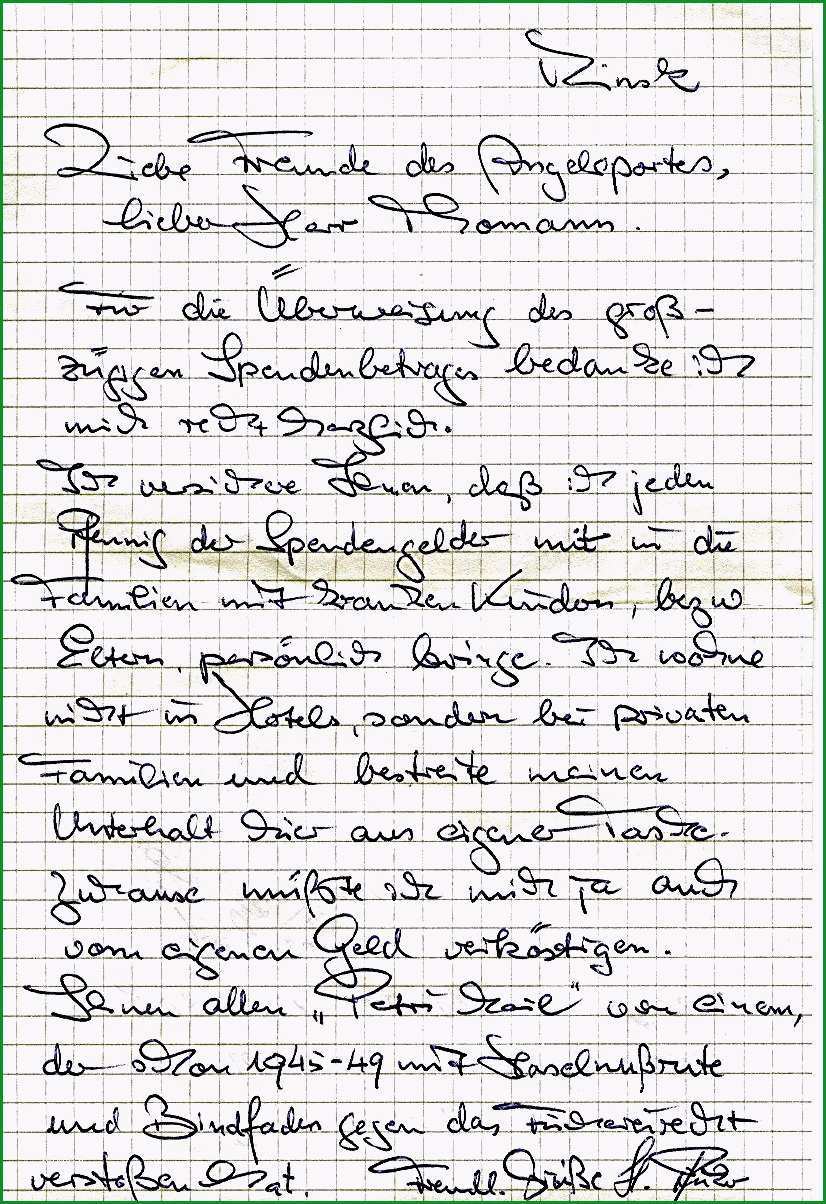 Liebe Freunde des Angelsportes,
lieber Herr Thomann.
Für die Überweisung des groß-
zügigen Spendenbetrages bedanke ich
mich recht herzlich.
Ich versichere Ihnen, daß ich jeden
Pfennig der Spendengelder mit in die
Familien mit kranken Kindern, bezw
Eltern, persönlich bringe. Ich wohne
nicht in Hotels, sondern bei privaten
Familien und bestreite meinen
Unterhalt hier aus eigener Tasche.
Zuhause müßte ich mich ja auch
vom eigenen Geld verköstigen.
Ihnen allen „Petri Heil" von einem,
der schon 1945-49 mit Haselnußrute
und Bindfaden gegen das Fischereirecht
verstoßen hat. Freundl. Grüße H.